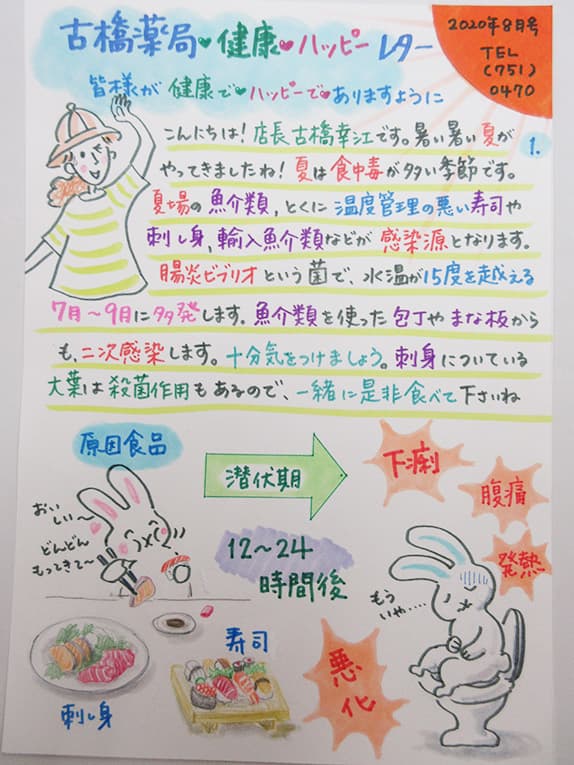 古橋薬局♥健康♥ハッピーレター
2020年8月号
TEL
(751)
0470
皆様が健康で♥ハッピーで♥ありますように
1.
こんにちは!店長古橋幸江です。暑い暑い夏が
やってきましたね!夏は食中毒が多い季節です。
夏場の魚介類,とくに温度管理の悪い寿司や
刺し身,輸入魚介類などが感染源となります。
腸炎ビブリオという菌で、水温が15度を越える
7月~9月に多発します。魚介類を使った包丁やまな板から
も、二次感染します。十分気をつけましょう。刺身についている
大葉は殺菌作用もあるので、一緒に是非食べて下さいね
原因食品
潜伏期
下痢
腹痛
発熱
おいしい~
どんどん
もってきて~
12~24
時間後
もう
いや····
悪化
寿司
刺し身